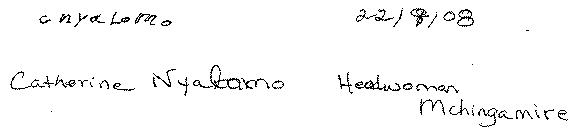 cnyalomo 22/8/08
Catherine Nyalomo Headwoman
Mchingamire